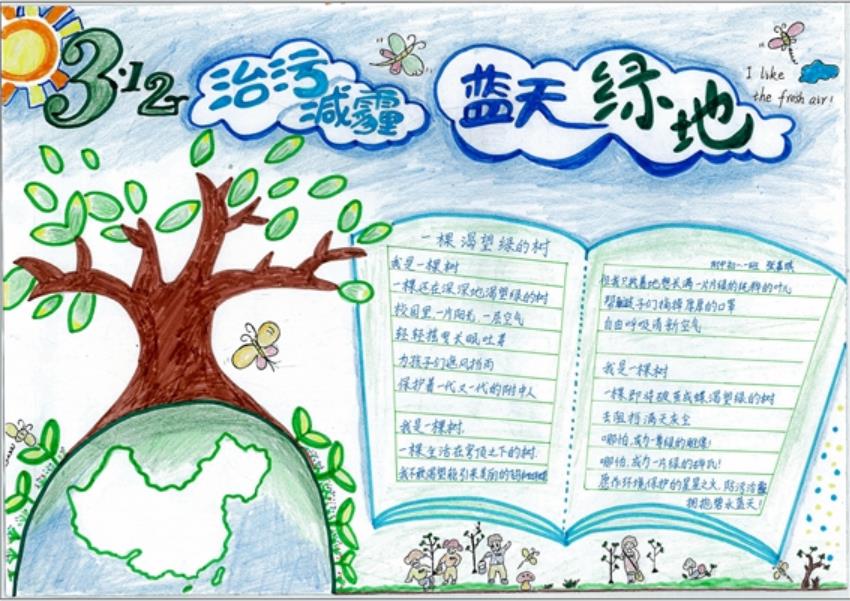 3·12
治污
减霾
蓝天绿地
I like
the fresh air!
一棵渴望绿的树
我是一棵树
一棵还在深深地渴望绿的树
校园里,一片阳光,一层空气
轻轻摇曳
为孩子们遮风挡雨
保护着一代又一代的附中人
我是一棵树,
一棵生活在穹顶之下的树.
我不敢渴望能引来美丽的
附中初一一班
但我只执着地想长满一片片绿的纯粹的叶儿
帮孩子们摘掉厚厚的口罩
自由呼吸清新空气
我是一棵树
一棵即将破茧成蝶渴望绿的树
去阻挡满天灰尘
哪怕,成为一季绿的雕像!
哪怕,成为一片绿的碎瓦!
愿作环境保护的星星之火,防污治霾
拥抱碧水蓝天!